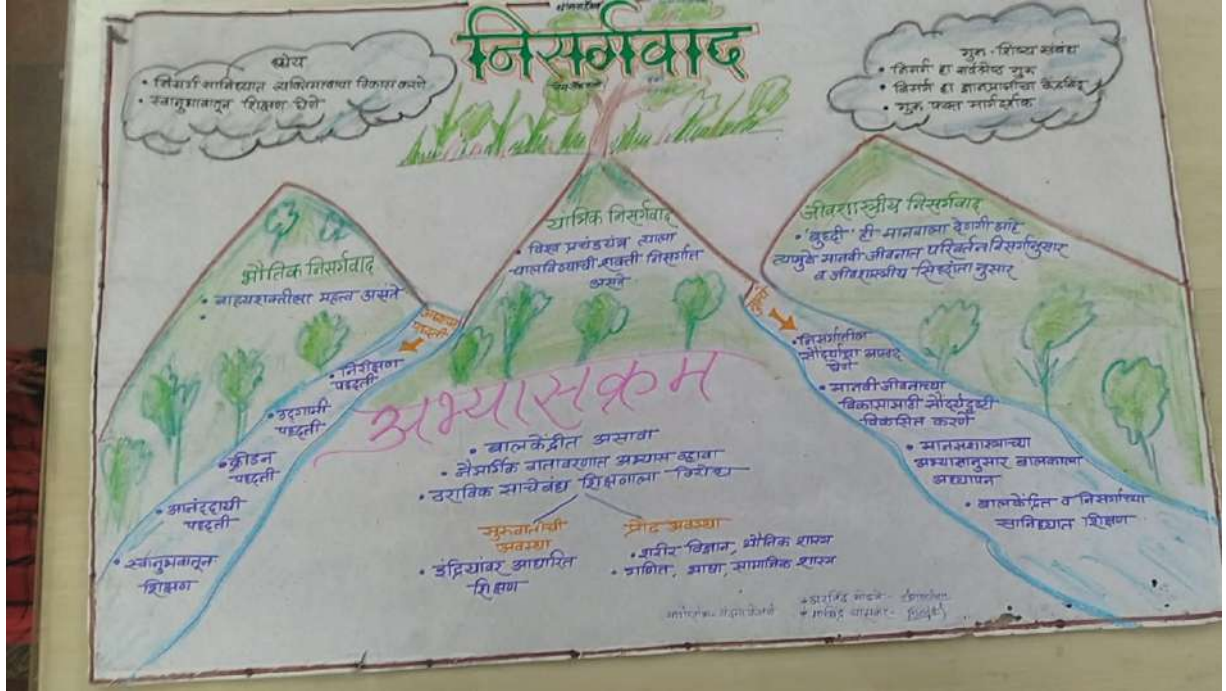 निसर्गवाद
ध्येय
• निसर्ग सानिध्यात व्यक्तिमत्वाचा विकास करणे
• स्वानुभावातून शिक्षण घेणे
गुरू-शिष्य संबंध
• निसर्ग हा सर्वश्रेष्ठ गुरू
• निसर्ग हा ज्ञानप्राप्तीचा केंद्रबिंदू
• गुरू फक्त मार्गदर्शक
भौतिक निसर्गवाद
• बाह्यशक्तीला महत्व असते
यांत्रिक निसर्गवाद
• विश्व प्रचंडयंत्र त्याला
चालविण्याची शक्ती निसर्गात
असते
जीवशास्त्रीय निसर्गवाद
• 'बुध्दी' ही मानवाला देणगी आहे
त्यामुळे मानवी जीवनात परिवर्तन निसर्गानुसार
व जीवशास्त्रीय सिध्दांता नुसार
अध्यापन
पद्दती
• निरीक्षण
पद्दती
• उदगामी
पद्दती
• क्रीडन
पद्दती
• आनंददायी
पद्दती
• स्वानुभवातून
शिक्षण
अभ्यासक्रम
• बालकेंद्रीत असावा
• नैसर्गिक वातावरणात अभ्यास व्हावा
• ठराविक साचेबंध शिक्षणाला विरोध
सुरुवातीची
अवस्था
• इंद्रियांवर आधारित
शिक्षण
प्रौढ अवस्था
• शरीर विज्ञान, भौतिक शास्त्र
• गणित, भाषा, सामाजिक शास्त्र
• निसर्गातील
सौंदर्याचा आस्वाद
घेणे
• मानवी जीवनाच्या
विकासासाठी सौंदर्यदृष्टी
विकसित करणे
• मानसशास्त्राच्या
अभ्यासानुसार बालकाला
अध्यापन
• बालकेंद्रित व निसर्गाच्या
सानिध्यात शिक्षण